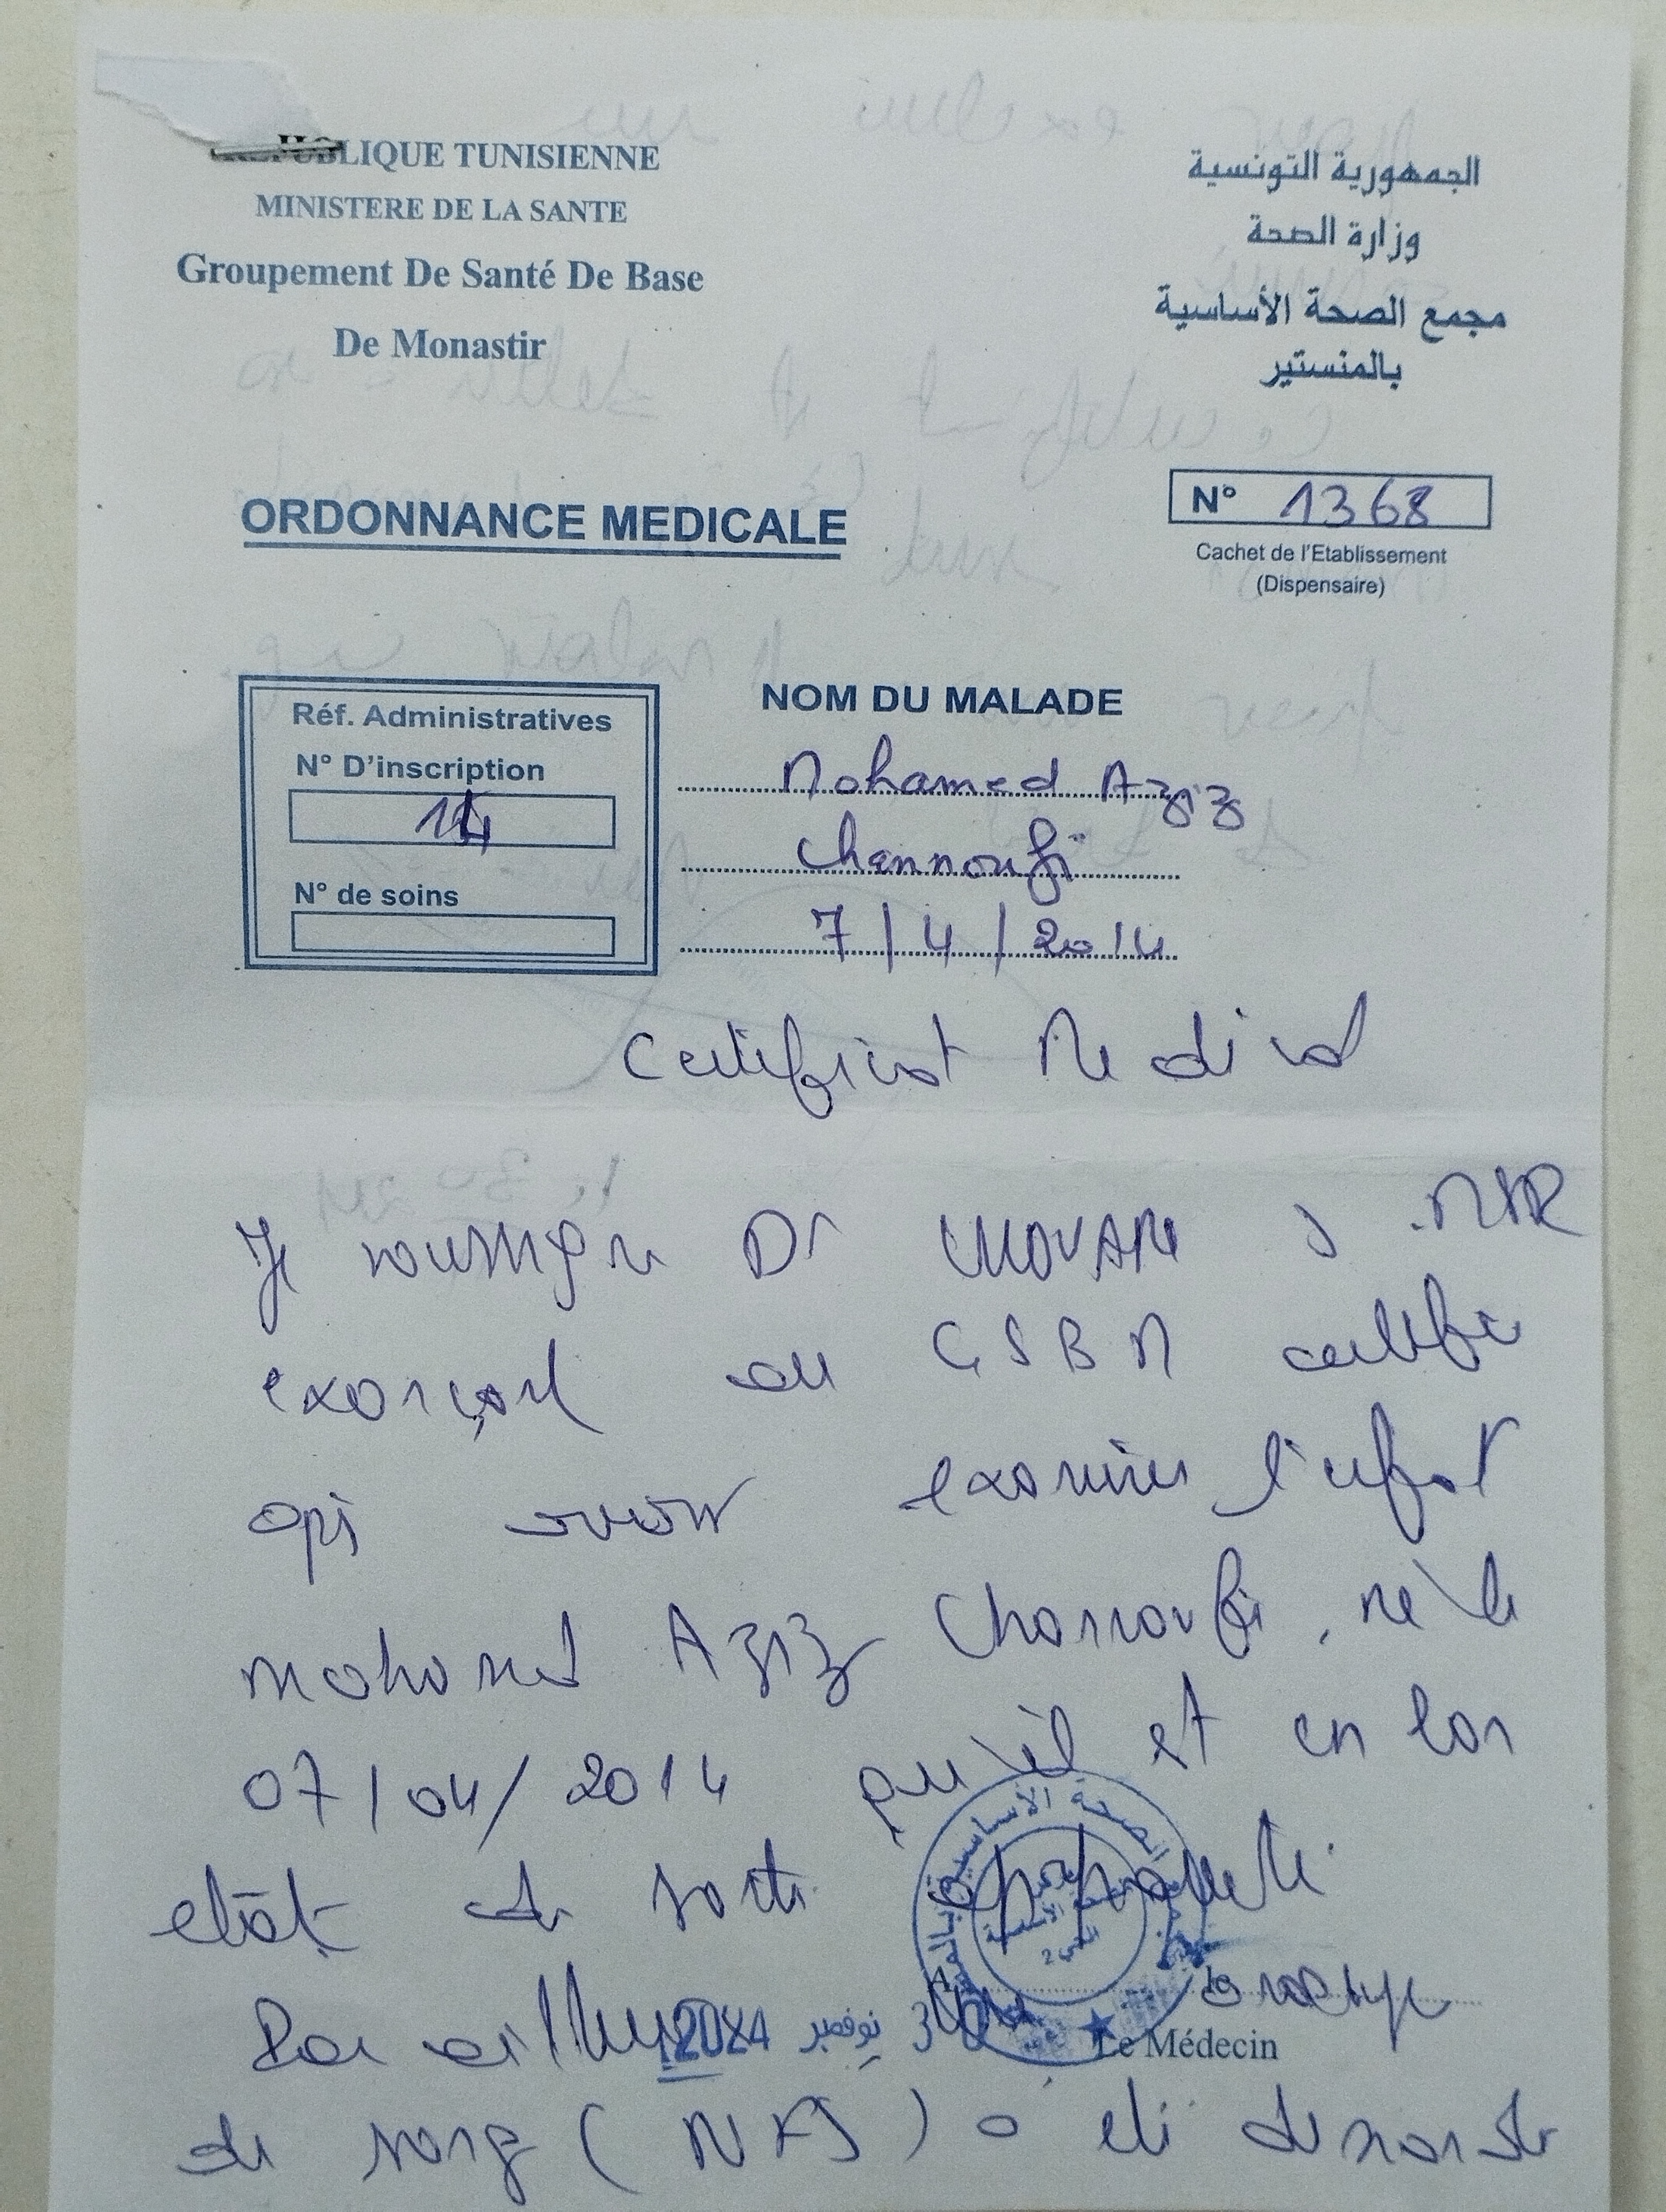 REPUBLIQUE TUNISIENNE
MINISTERE DE LA SANTE
Groupement De Santé De Base
De Monastir
الجمهورية التونسية
وزارة الصحة
مجمع الصحة الأساسية
بالمنستير
ORDONNANCE MEDICALE
N° 1368
Cachet de l'Etablissement
(Dispensaire)
Réf. Administratives
N° D'inscription
14
N° de soins
NOM DU MALADE
Mohamed Aziz
Chennoufi
7/4/2014
Certificat Medical
Je soussigné Dr
exerçant au CSB M certifie
après avoir examiné l'enfant
Mohamed Aziz Channoufi, né le
07/04/2014 qu'il est en bon
état de santé apparente.
Par ailleurs
30 نوفمبر 2024
Le Médecin
de sang (NFS) a été demandé